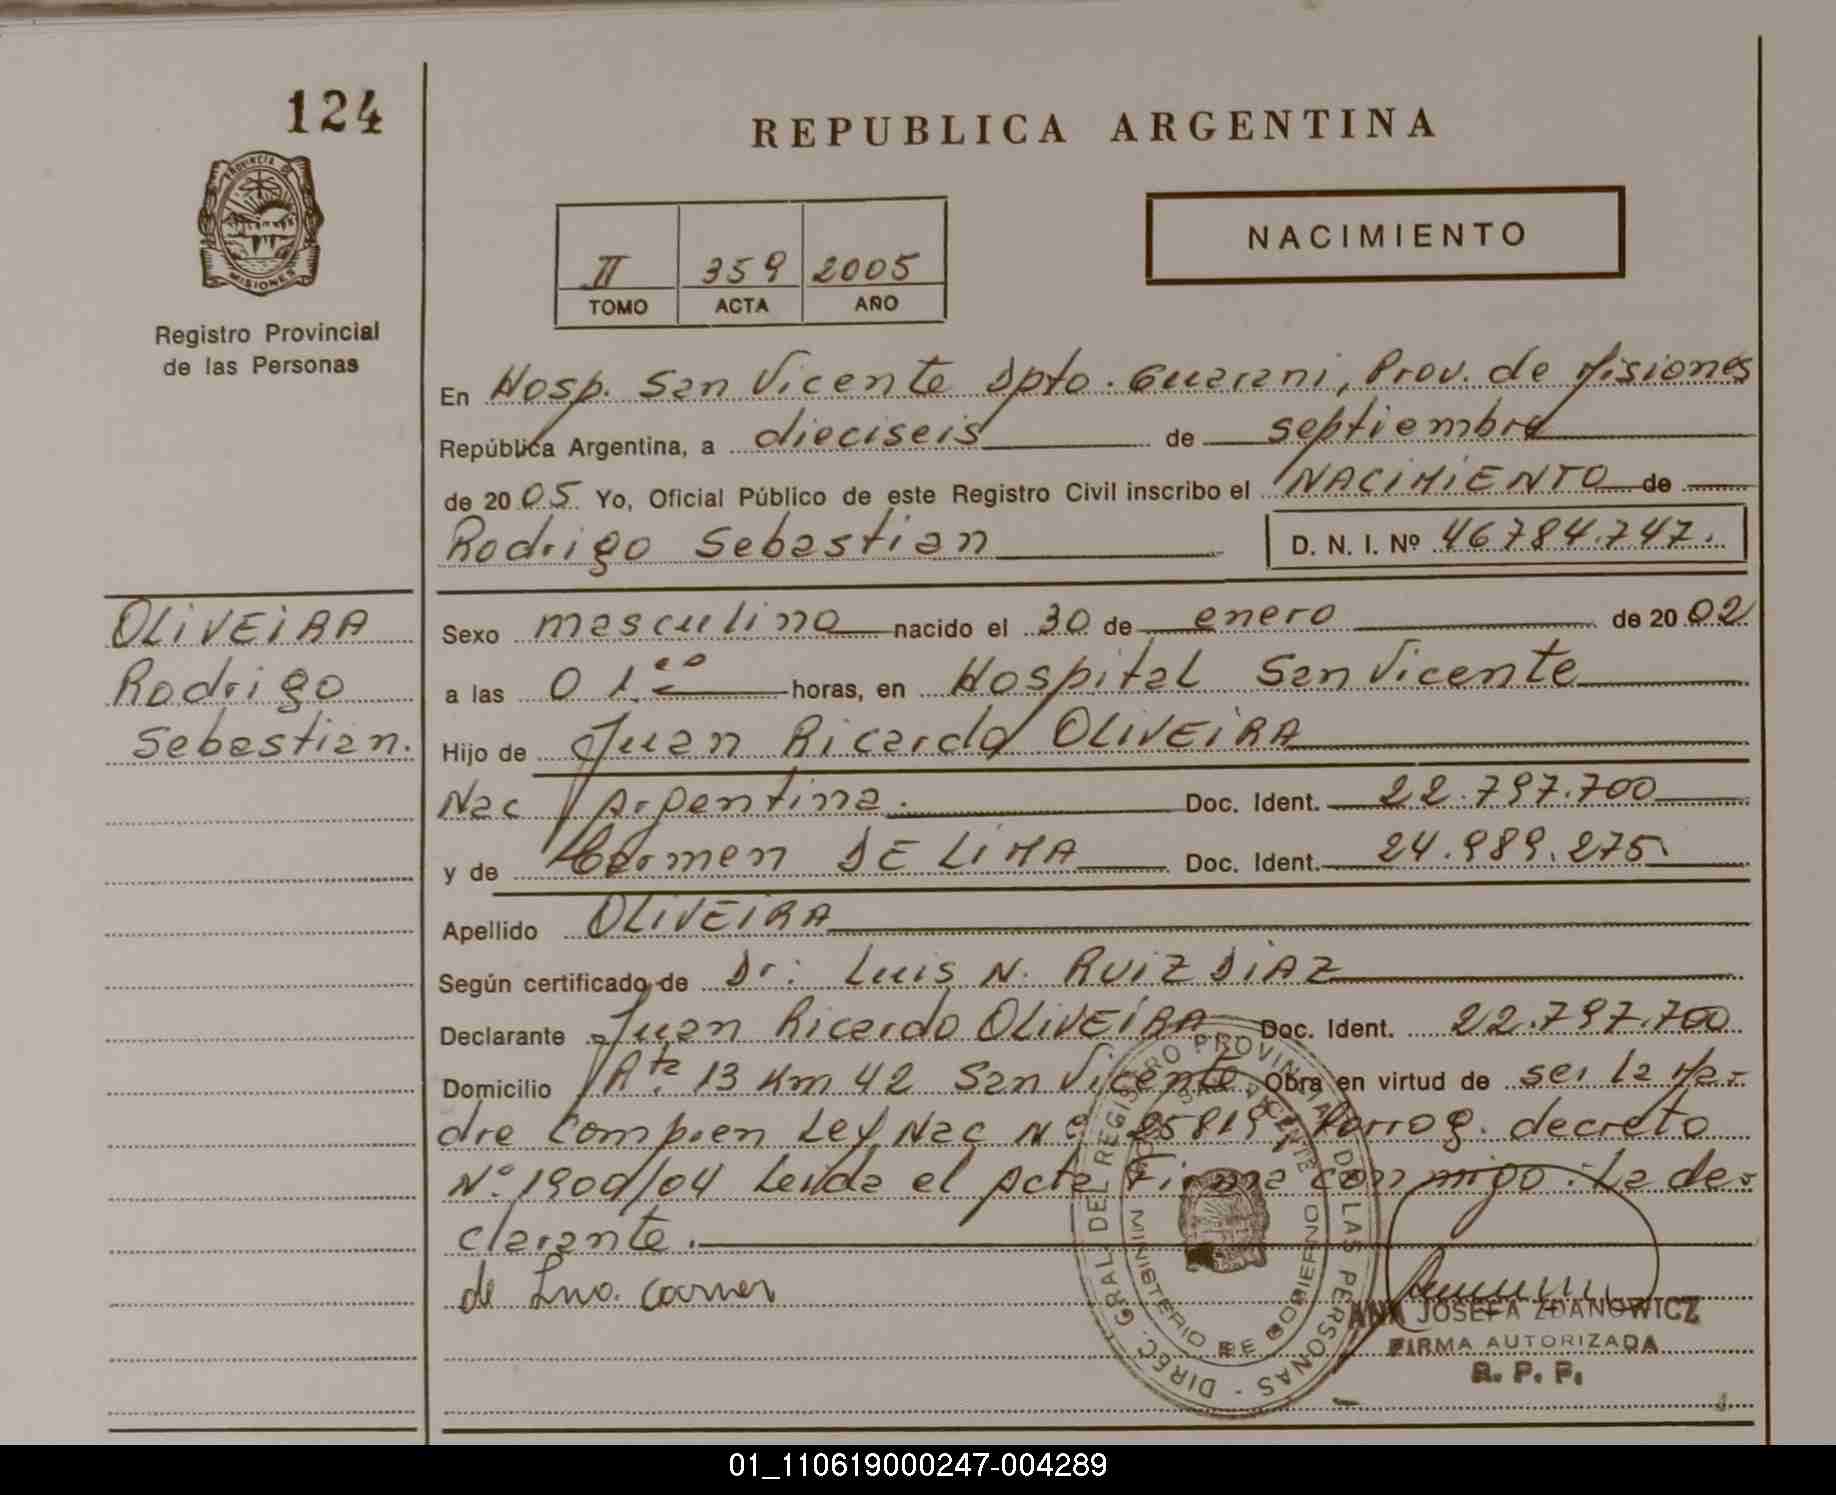 124
PROVINCIA DE
MISIONES
Registro Provincial
de las Personas
OLIVEIRA
Rodrigo
Sebastian.
REPUBLICA ARGENTINA
II 359 2005
TOMO ACTA AÑO
NACIMIENTO
En Hosp. San Vicente Dpto. Guarani, Prov. de Misiones
República Argentina, a dieciseis de septiembre
de 2005 Yo, Oficial Público de este Registro Civil inscribo el NACIMIENTO de
Rodrigo Sebastian D. N. I. Nº 46784.747.
Sexo masculino nacido el 30 de enero de 2002
a las 01.00 horas, en Hospital San Vicente
Hijo de Juan Ricardo OLIVEIRA
Nac Argentina. Doc. Ident. 22.797.700
y de Carmen DE LIMA Doc. Ident. 24.989.275
Apellido OLIVEIRA
Según certificado de Dr. Luis N. RUIZ DIAZ
Declarante Juan Ricardo OLIVEIRA Doc. Ident. 22.797.700
Domicilio Rta 13 Km 42 San Vicente Obra en virtud de ser la Ma-
dre Comp. en Ley Nac Nº 25819, Porrog. decreto
Nº 1900/04 Leida el acta Firma conmigo: La de-
clarante.
de Carmen
DIREC. GRAL. DEL REGISTRO PROVINCIAL DE LAS PERSONAS -
SAN VICENTE
MINISTERIO DE GOBIERNO
ANA JOSEFA ZDANOWICZ
FIRMA AUTORIZADA
R. P. P.
01_110619000247-004289